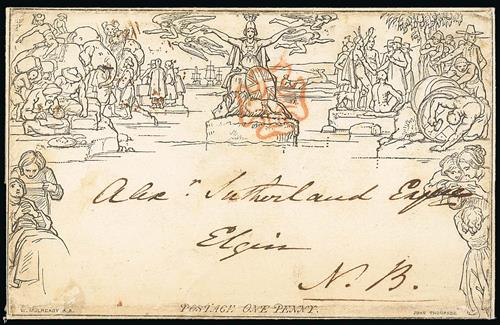 Alexr. Sutherland Esqre
Elgin
N. B.
POSTAGE ONE PENNY.
W. MULREADY R.A.
JOHN THOMPSON